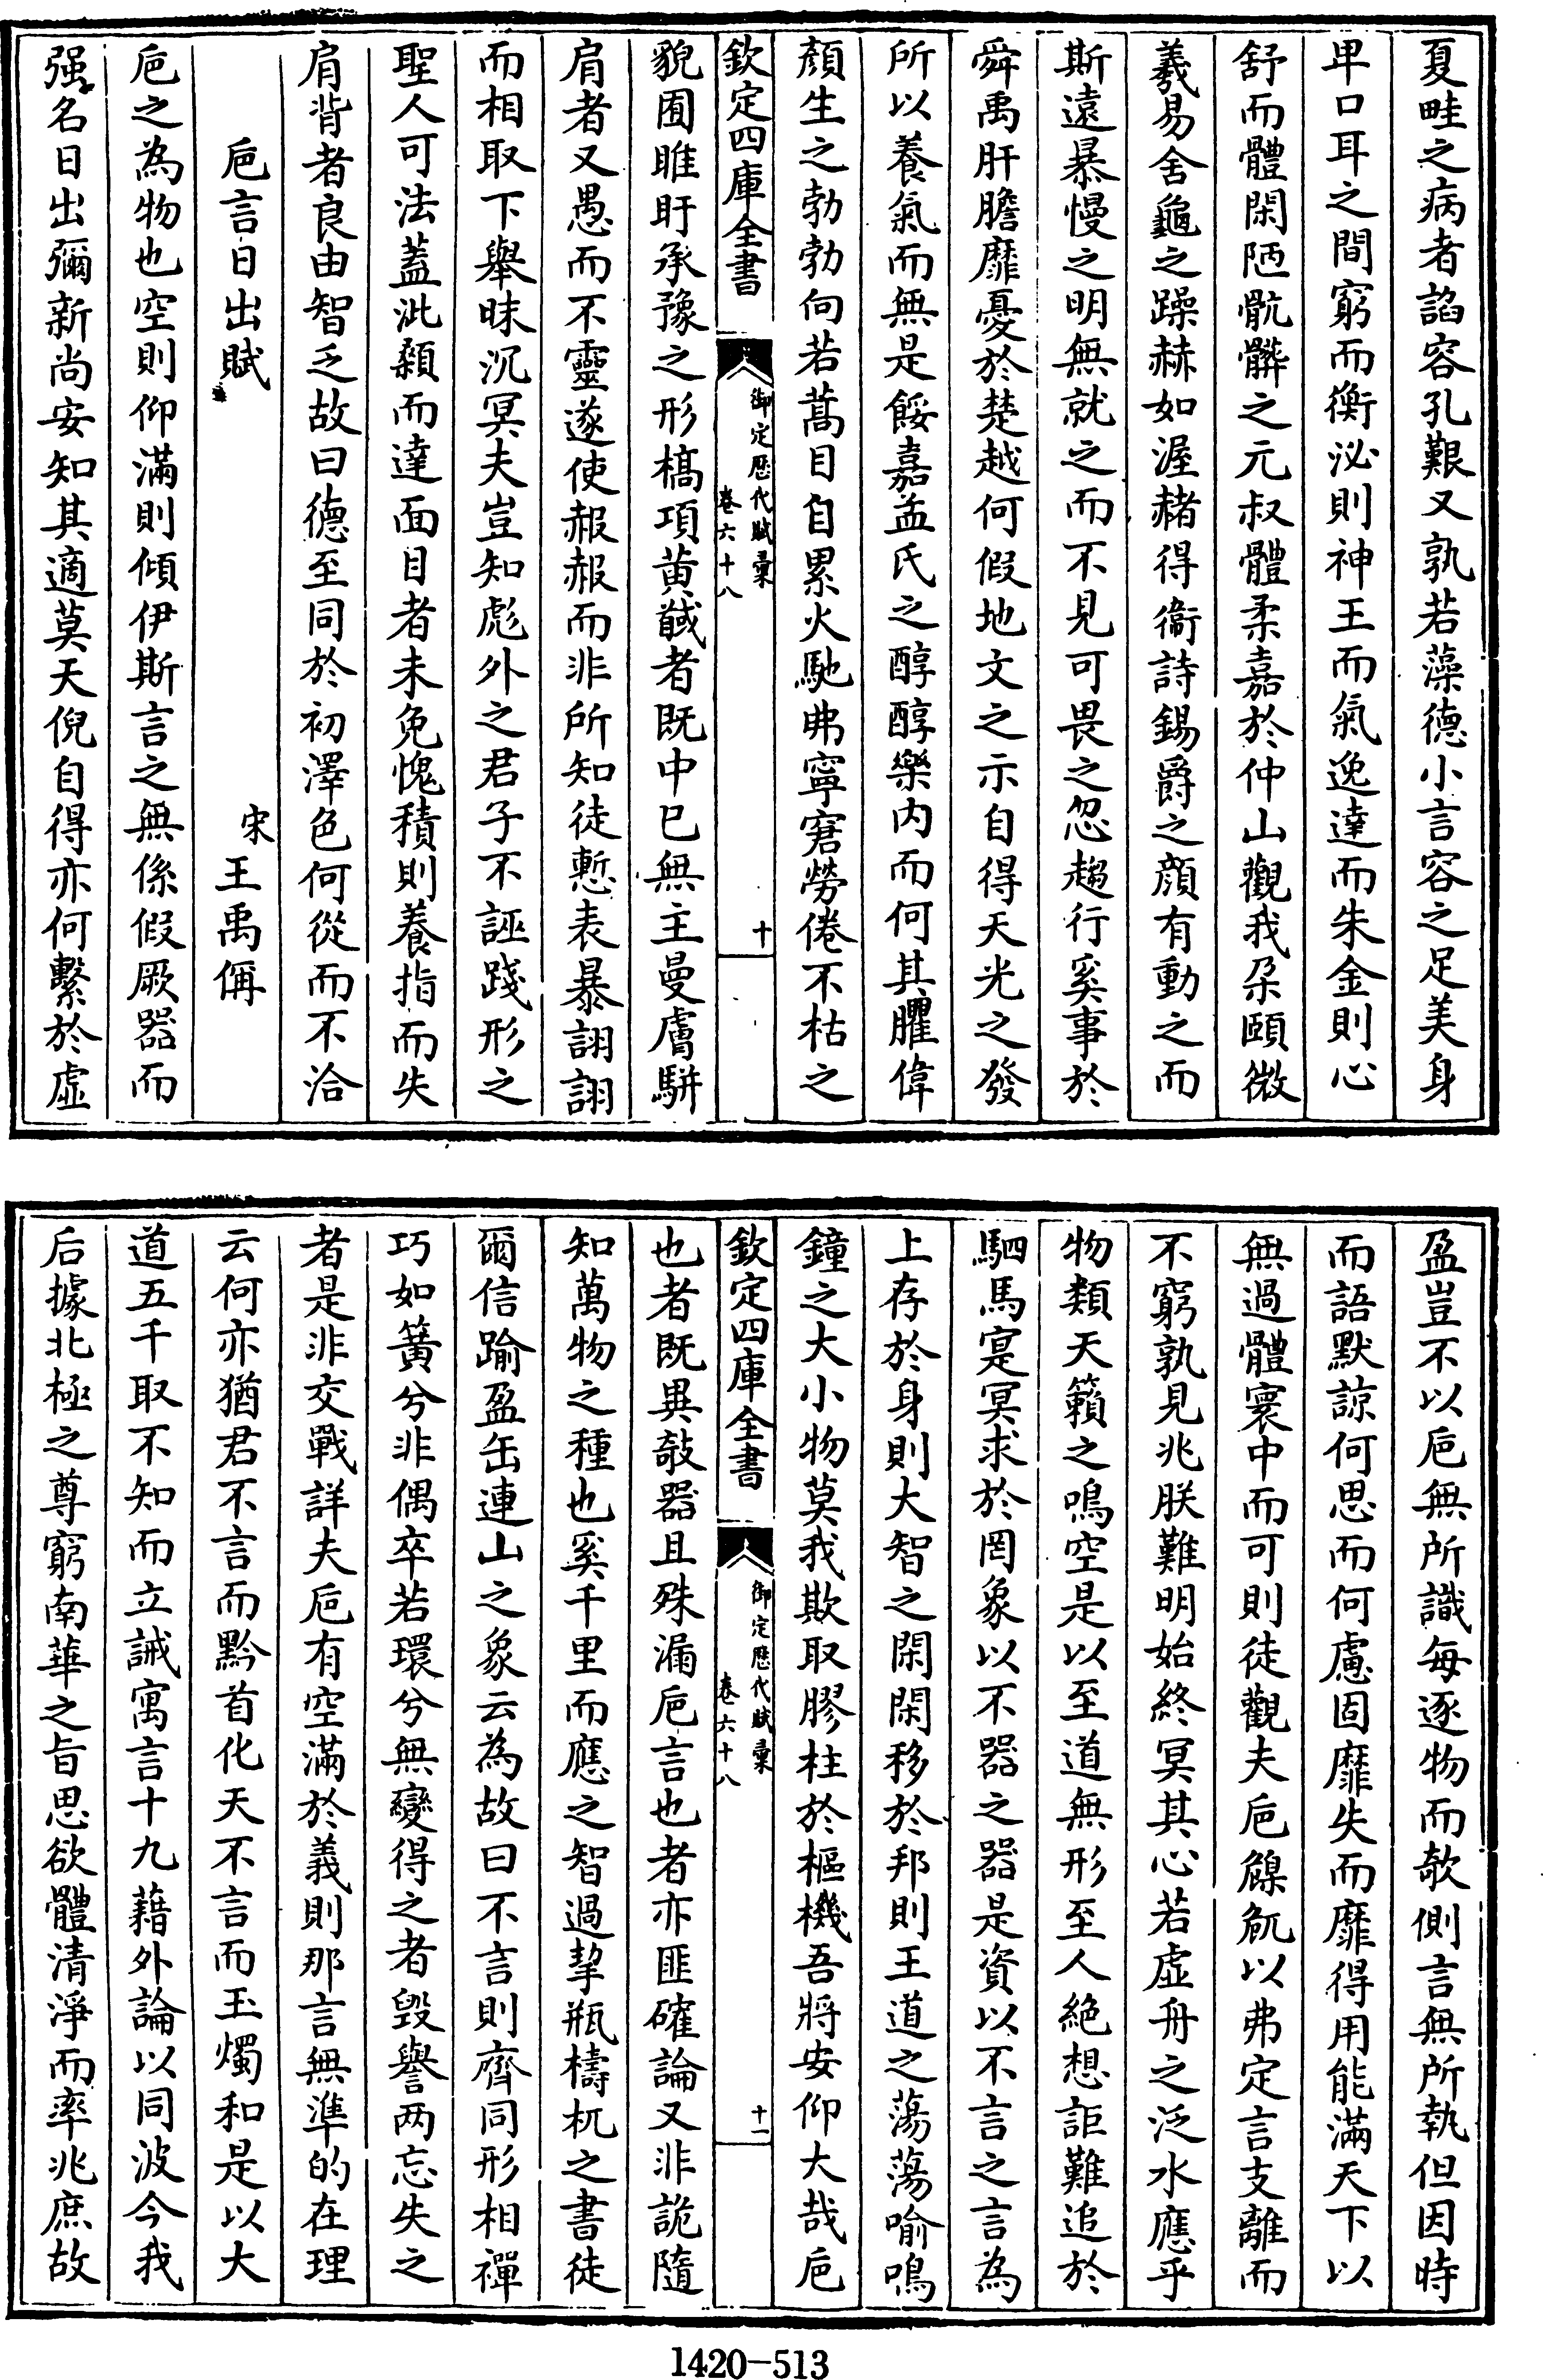 夏畦之病者謟容孔艱又孰若藻德小言容之足美身
卑口耳之間窮而衡泌則神王而氣逸達而朱金則心
舒而體閑陋骯髒之元叔體柔嘉於仲山觀我朶頤微
羲易舍龜之躁赫如渥赭得衞詩錫爵之顔有動之而
斯遠暴慢之明無就之而不見可畏之忽趨行奚事於
舜禹肝膽靡憂於楚越何假地文之示自得天光之發
所以養氣而無是餒嘉孟氏之醇醇樂内而何其臞偉
顏生之勃勃向若蒿目自累火馳弗寧窘勞倦不枯之
欽定四庫全書
御定歷代賦彙
卷六十八
十
貌囿睢盱承豫之形槁項黄馘者既中已無主曼膚駢
肩者又愚而不靈遂使赧赧而非所知徒慙表暴詡詡
而相取下舉昧沉冥夫豈知彪外之君子不誣踐形之
聖人可法蓋泚顙而達面目者未免愧積則養指而失
肩背者良由智乏故曰德至同於初澤色何從而不洽
巵言日出賦
宋王禹偁
巵之為物也空則仰滿則傾伊斯言之無係假厥器而
强名日出彌新尚安知其適莫天倪自得亦何繫於虛
盈豈不以巵無所識每逐物而欹側言無所執但因時
而語默諒何思而何慮固靡失而靡得用能滿天下以
無過體寰中而可則徒觀夫巵臲卼以弗定言支離而
不窮孰見兆朕難明始終冥其心若虛舟之泛水應乎
物類天籟之鳴空是以至道無形至人絶想詎難追於
駟馬寔冥求於罔象以不器之器是資以不言之言為
上存於身則大智之閑閑移於邦則王道之蕩蕩喻鳴
鐘之大小物莫我欺取膠柱於樞機吾將安仰大哉巵
欽定四庫全書
御定歷代賦彙
卷六十八
十一
也者既異敧器且殊漏巵言也者亦匪確論又非詭隨
知萬物之種也奚千里而應之智過挈瓶檮杌之書徒
爾信踰盈缶連山之象云為故曰不言則齊同形相禪
巧如簧兮非偶卒若環兮無變得之者毀譽两忘失之
者是非交戰詳夫巵有空滿於義則那言無準的在理
云何亦猶君不言而黔首化天不言而玉燭和是以大
道五千取不知而立誡寓言十九藉外論以同波今我
后據北極之尊窮南華之旨思欲體清淨而率兆庶故
1420-513